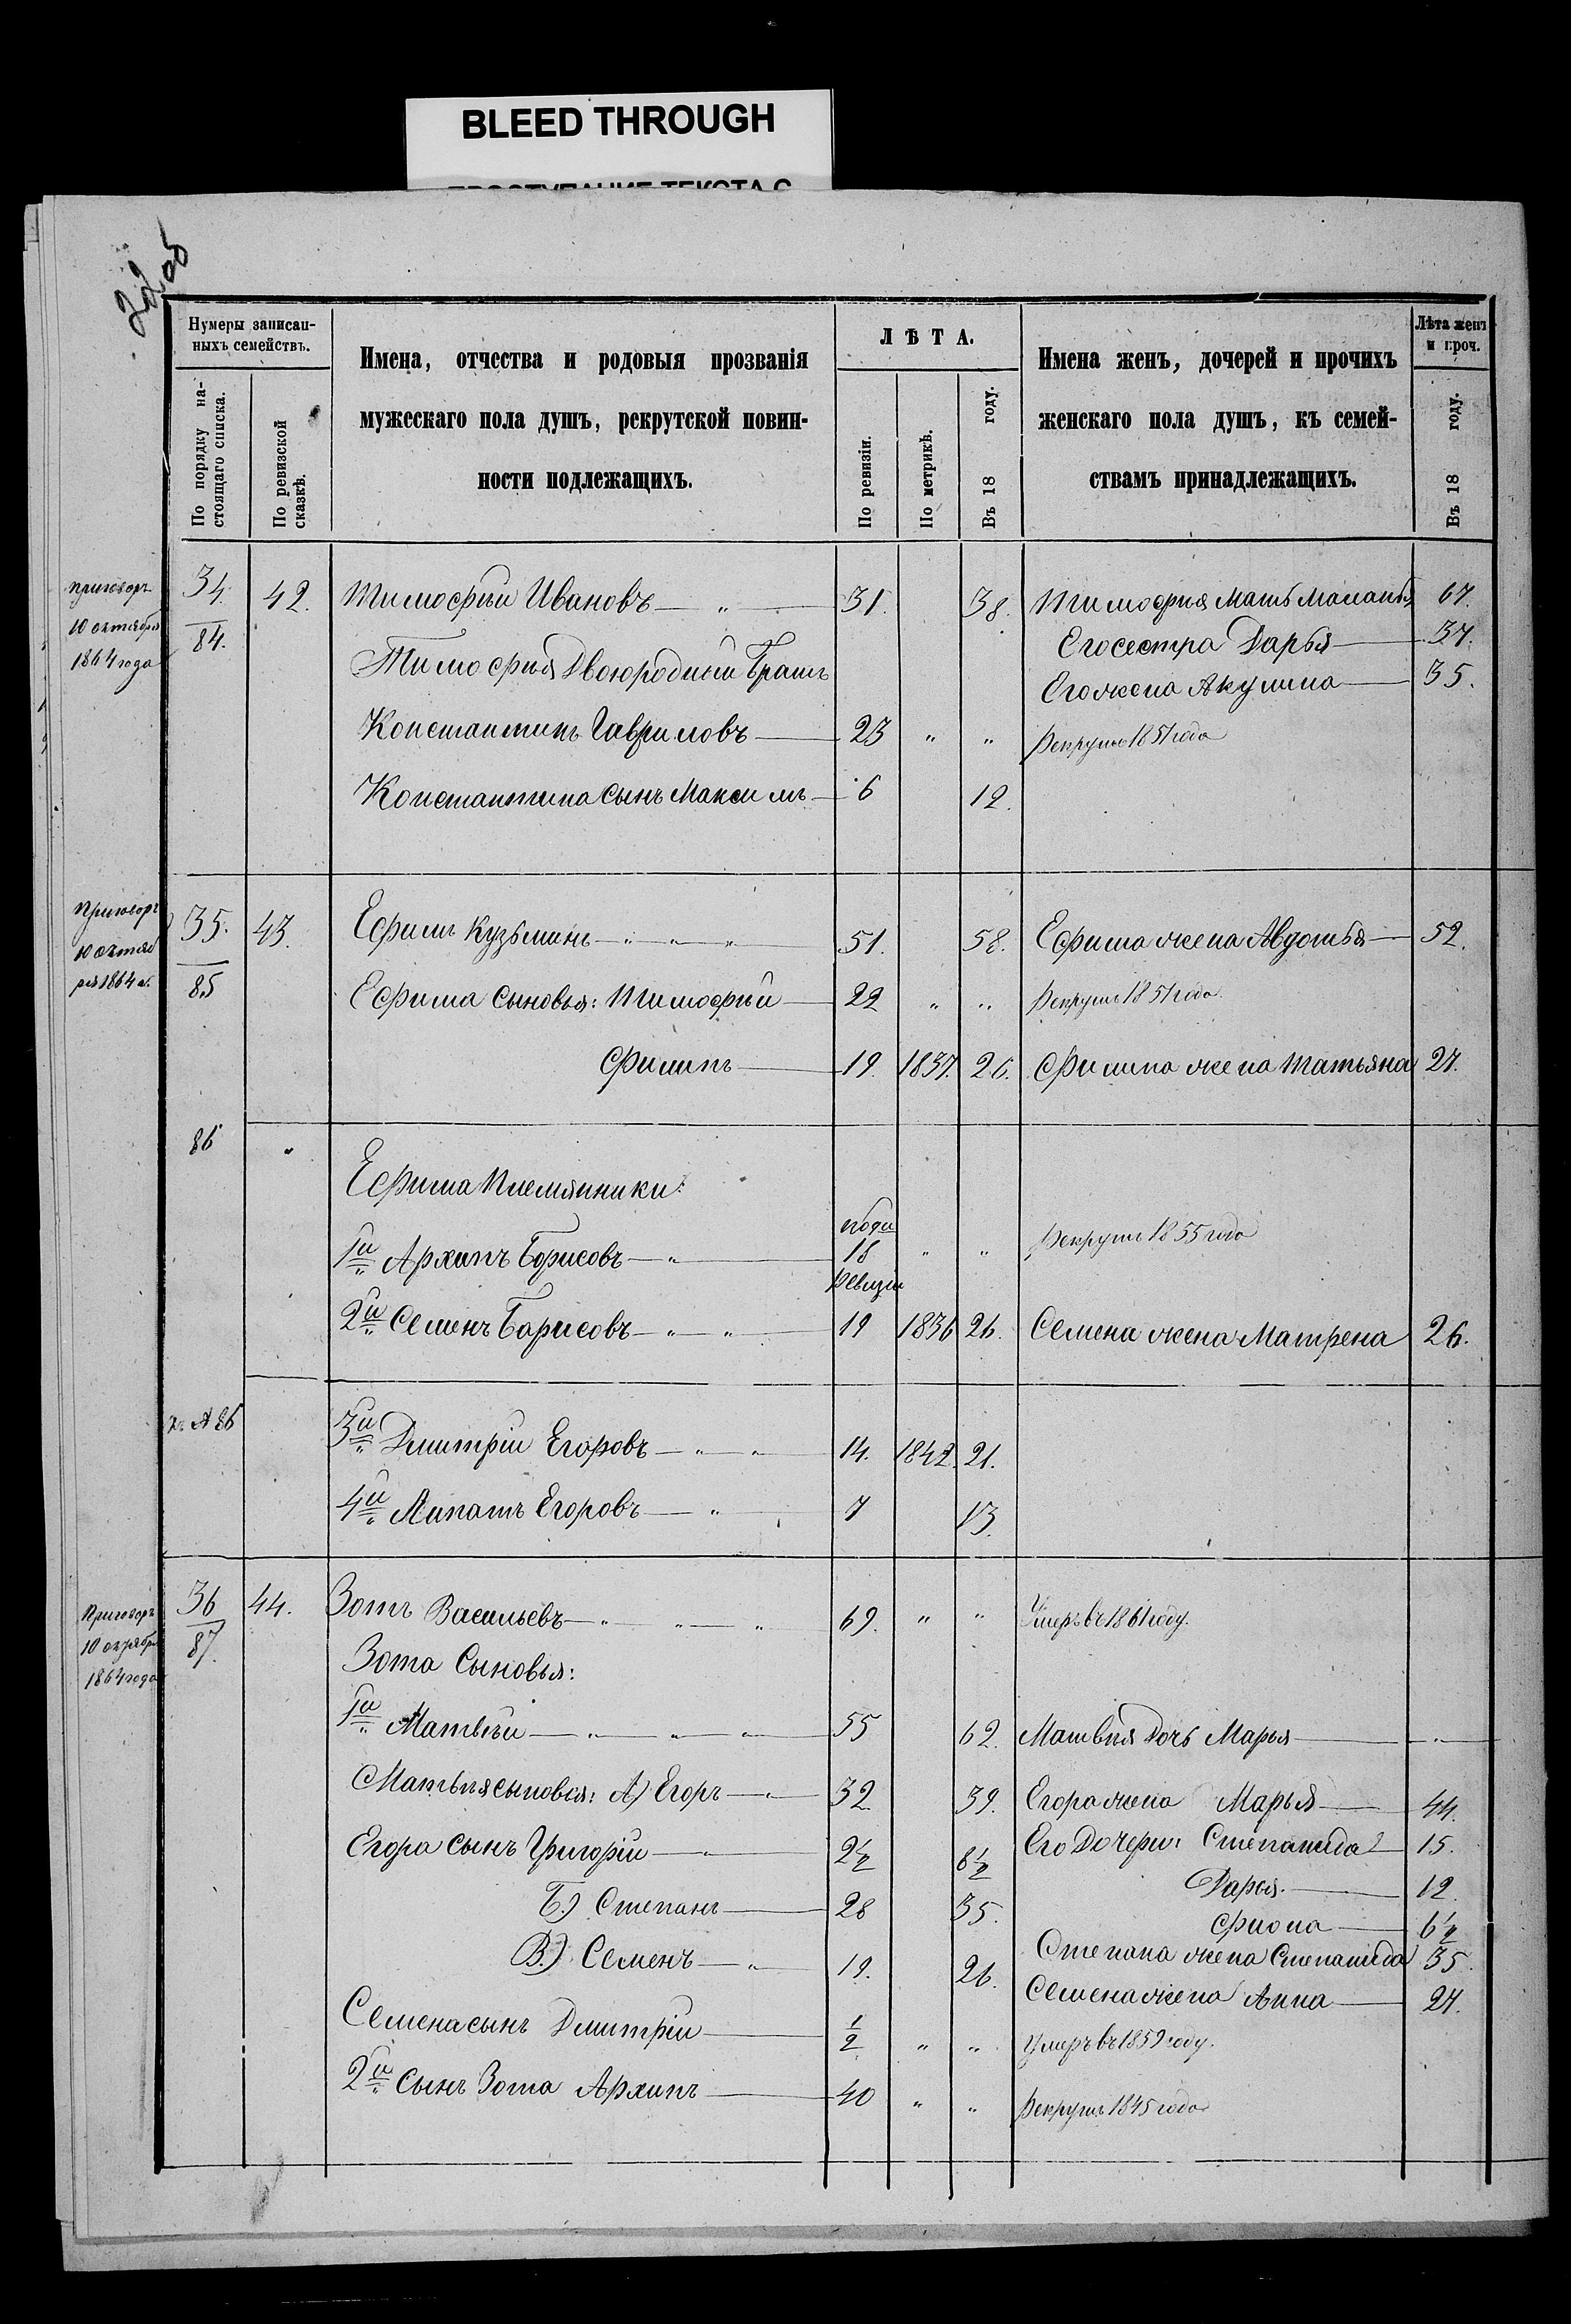 BLEED THROUGH
22 об
Нумеры записан-
ныхъ семействъ.
По порядку на-
стоящаго списка.
По ревизской
сказкѣ.
Имена, отчества и родовыя прозванія
мужескаго пола душъ, рекрутской повин-
ности подлежащихъ.
ЛѢТА.
По ревизіи.
По метрикѣ.
Въ 18 году.
Имена женъ, дочерей и прочихъ
женскаго пола душъ, къ семей-
ствамъ принадлежащихъ.
Лѣта женъ
и проч.
Въ 18 году.
приговоръ
10 октября
1864 года
34. 42. Тимофѣй Ивановъ — „ — 31. 38. Тимофея мать Маланья 67.
84. Его сестра Дарья — 37.
Тимофея двоюродный братъ
Его жена Акулина — 35.
Константинъ Гавриловъ — 23 „ „ рекрутъ 1851 года
Константина сынъ Максимъ — 6 12.
Приговоръ
10 октяб
ря 1864 г.
35. 43. Ефимъ Кузьминъ — „ — „ — „ 51. 58. Ефима жена Авдотья — 52.
85 Ефима сыновья: Тимофѣй — 22 „ „ рекрутъ 1851 года.
Филипъ — 19. 1837. 26. Филипа жена Татьяна 27.
86 „
Ефима племянники:
1й Архипъ Борисовъ — „ — 18 „ „ рекрутъ 1855 года
ревизіи
2й Семенъ Борисовъ — „ — „ — 19 1836 26. Семена жена Матрена 26.
А 86
3й Дмитрій Егоровъ — „ — „ 14. 1842. 21.
4й Липатъ Егоровъ — „ — 7 13.
Приговоръ
10 октября
1864 года
36 44. Зотъ Васильевъ — „ — „ — „ 69. „ „ Умеръ въ 1861 году.
87.
Зота Сыновья:
1й Матвѣй — „ — „ — „ — 55 62. Матвѣя дочь Марья — „ —
Матвѣя сыновья: А) Егоръ — „ — 32. 39. Егора жена Марья — 44.
Егора сынъ Григорій — „ — 2½ 8½ Его дочери: Степанида — 15.
Дарья. — 12.
Б.) Степанъ — 28 35.
Фiона — 6½
В.) Семенъ — „ — 19. 26. Степана жена Степанида 35.
Семена жена Анна — 27.
Семена сынъ Дмитрій — ½ „ „ Умеръ въ 1859 году.
2й сынъ Зота Архипъ — 40 „ „ рекрутъ 1845 года